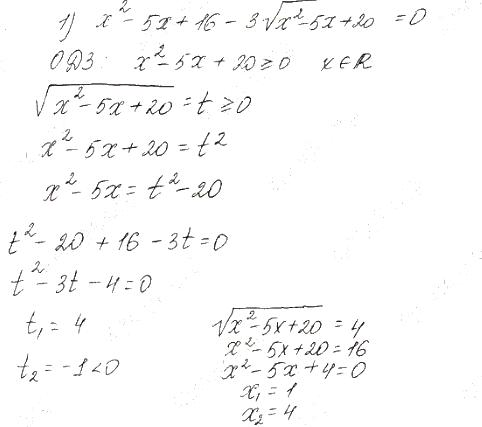 1) x² - 5x + 16 - 3√(x² - 5x + 20) = 0
ОДЗ: x² - 5x + 20 ≥ 0 x ∈ R
√(x² - 5x + 20) = t ≥ 0
x² - 5x + 20 = t²
x² - 5x = t² - 20
t² - 20 + 16 - 3t = 0
t² - 3t - 4 = 0
t₁ = 4
t₂ = -1 < 0
√(x² - 5x + 20) = 4
x² - 5x + 20 = 16
x² - 5x + 4 = 0
x₁ = 1
x₂ = 4